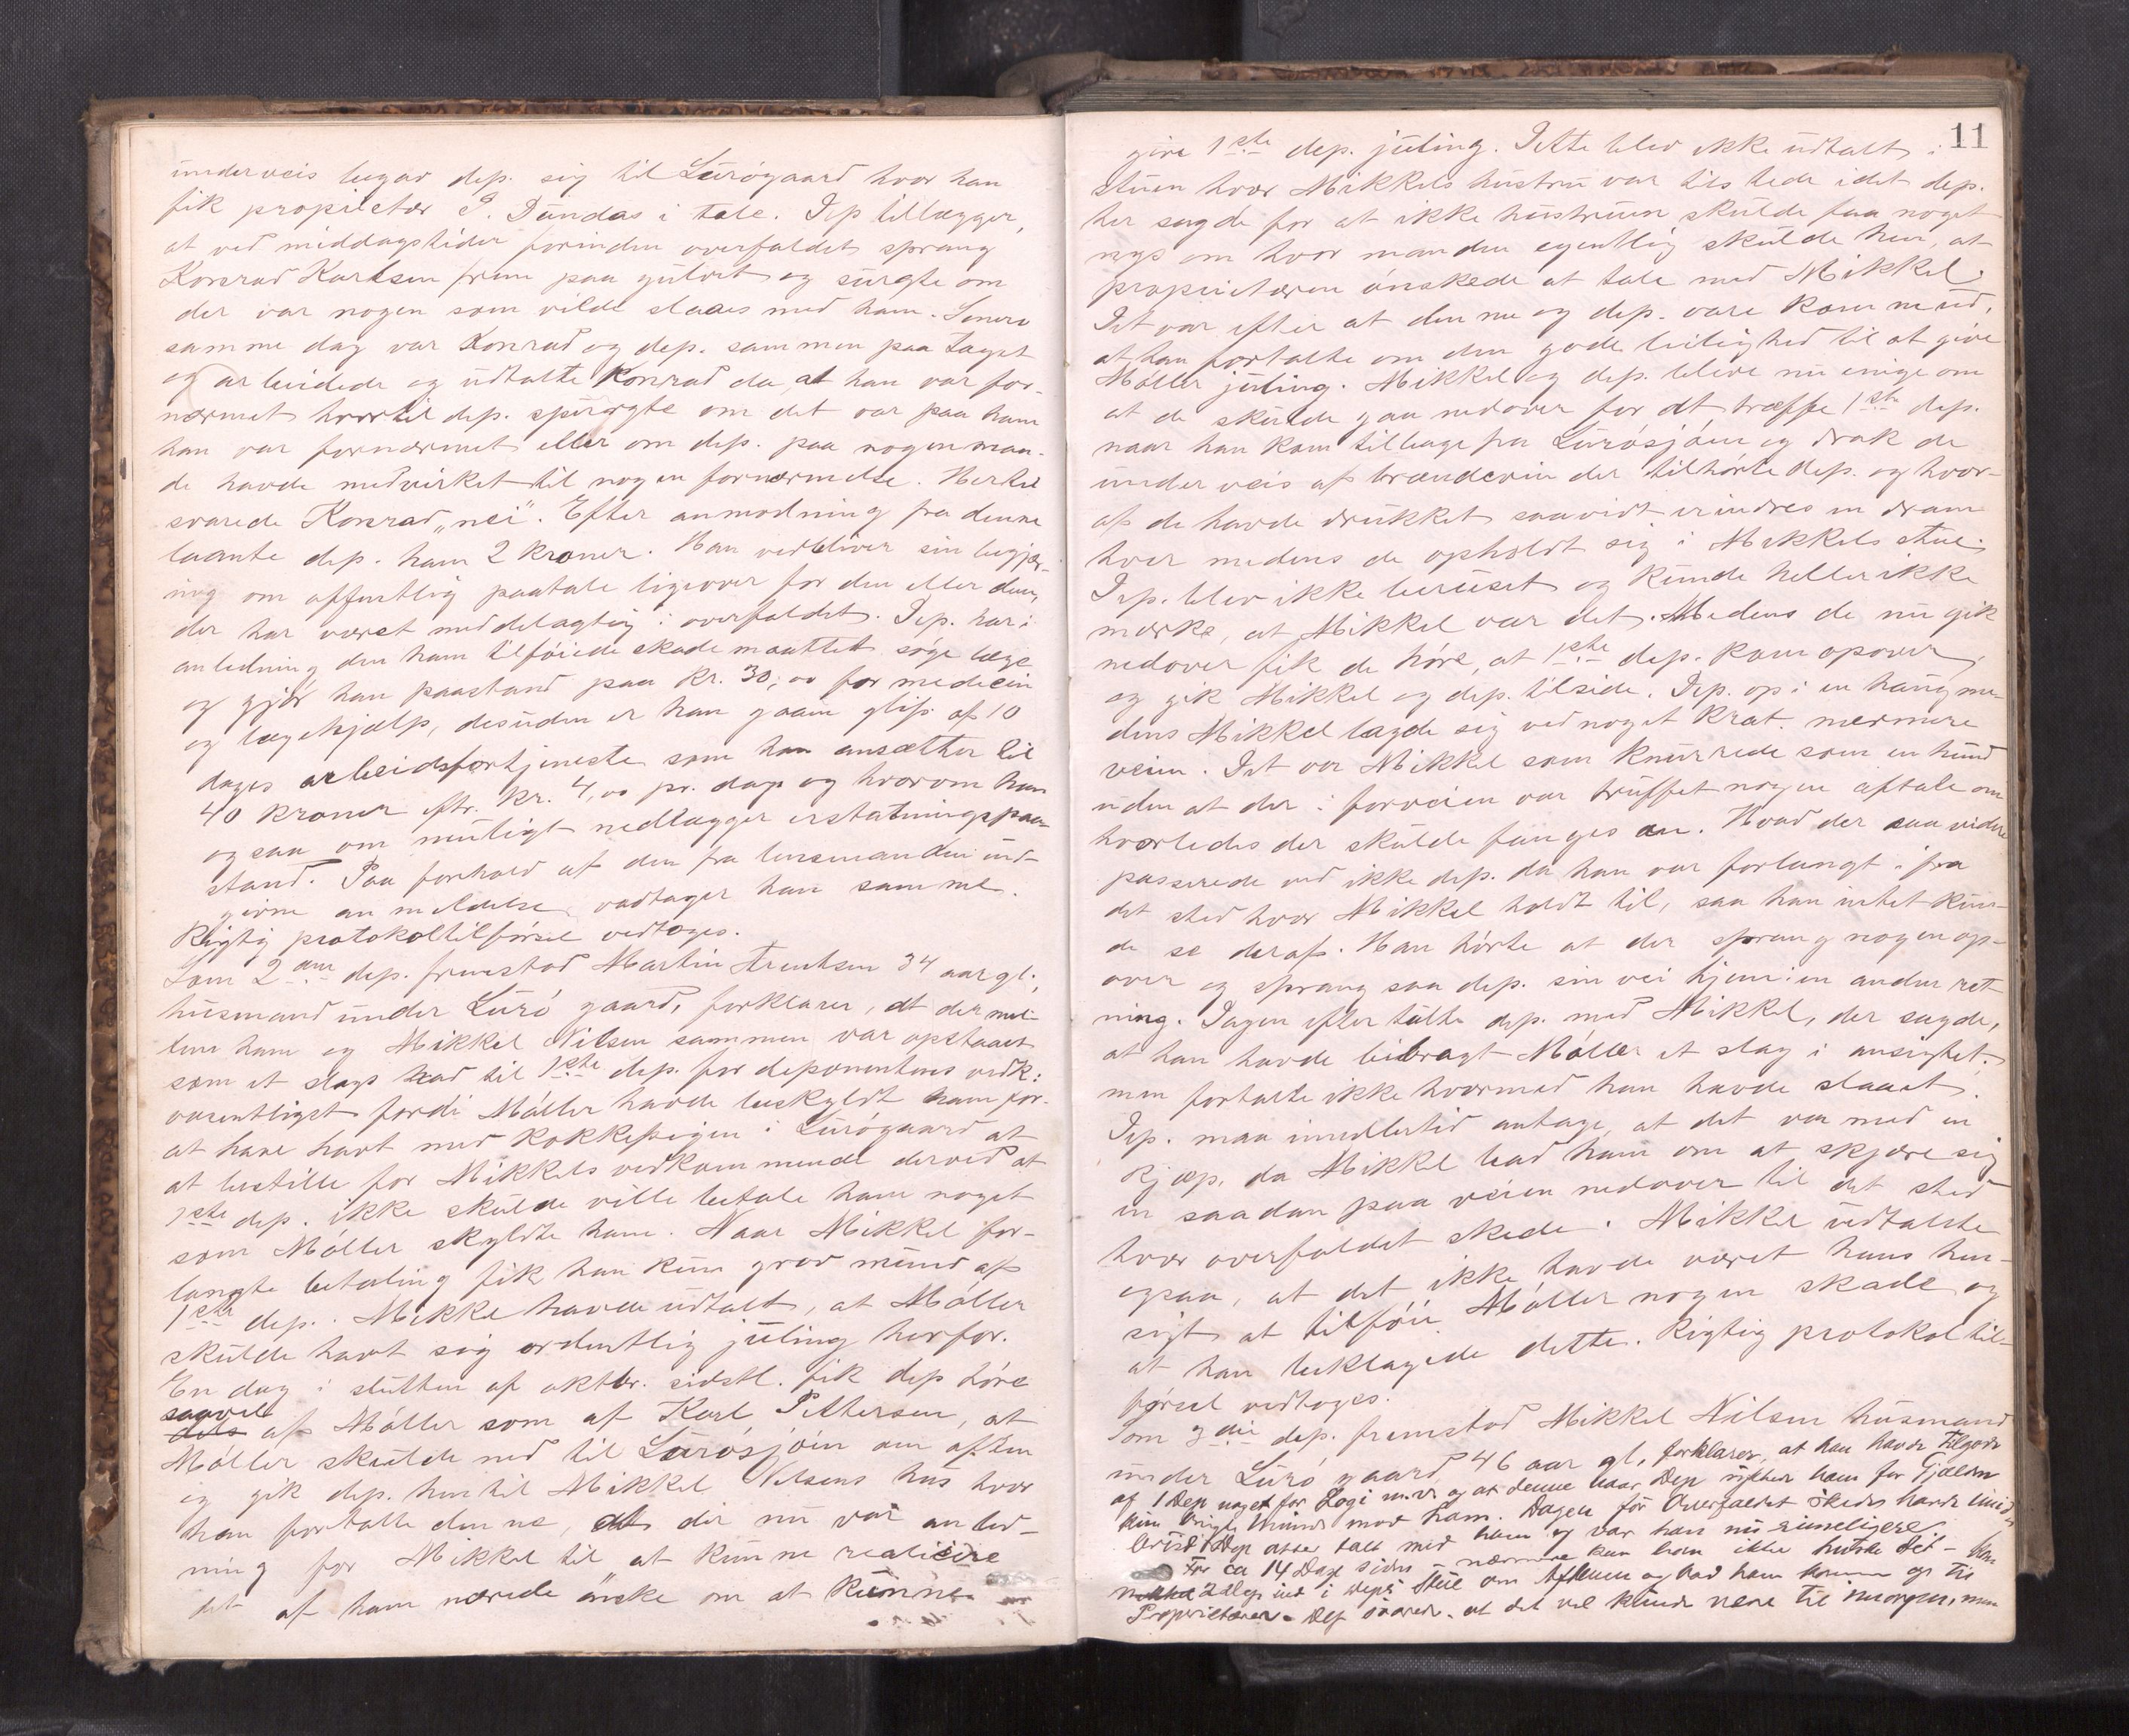 underveis begav dep. sig til Lurøgaard hvor han
fik proprietær P. Dundas i tale. Dep tillægger,
at ved middagstider forinden overfaldet sprang
Konrad Karlsen frem paa gulvet og spurgte om
der var nogen som vilde slaaes med ham. Senere
samme dag var Konrad og dep. sammen paa Taget
og arbeidede og udtalte Konrad da, at han var for-
nærmet hvortil dep. spurgte om det var paa ham
han var fornærmet eller om dep. paa nogen maa-
de havde medvirket til nogen fornærmelse. Hertil
svarede Konrad „nei". Efter anmodning fra denne
laante dep. ham 2 kroner. Han vedbliver sin begjær-
ing om offentlig paatale ligeover for den eller dem,
der har været meddelagtig i overfaldet. Dep. har i
anledning den ham tilføiede skade maattet søge læge
og gjør han paastand paa Kr. 30,00 for medicin
og lægehjælp, desuden er han gaaen glip af 10
dages arbeidsfortjeneste som han ansætter til
40 kroner eftr. Kr. 4,00 pr. dag og hvorom han
ogsaa om muligt nedlægger erstatningspaa-
stand. Paa forhold af den fra lensmanden ind-
givne anmeldelse vedtager han samme.
Rigtig protokoltilførsel vedtoges.
Som 2den dep. fremstod Martin Arentsen 34 aar gl.,
husmand under Lurø gaard, forklarer, at der mel-
lem ham og Mikkel Nilsen sammen var opstaaet
som et slags had til 1ste dep. for deponentens vedk:
væsentligst fordi Møller havde beskyldt ham for
at have havt med kokkepigen i Lurøgaard at
at bestille for Mikkels vedkommende derved at
1ste dep. ikke skulde ville betale ham noget
som Møller skyldte ham. Naar Mikkel for-
langte betaling fik han kun grov mund af
1ste dep. Mikkel havde udtalt, at Møller
skulde havt sig ordentlig juling herfor.
En dag i slutten af oktbr. sidstl. fik dep høre
saavel
dels af Møller som af Karl Pettersen, at
Møller skulde ned til Lurøsjøen om aften
og gik dep. hen til Mikkel Nilsens hus hvor
han fortalte denne, at der nu var anled-
ning for Mikkel til at kunne realisere
det af ham nærede ønske om at kunne
11
give 1ste dep. juling. Dette blev ikke udtalt i
stuen hvor Mikkels hustru var tilstede idet dep.
her sagde for at ikke hustruen skulde faa noget
nys om hvor manden egentlig skulde hen, at
proprietæren ønskede at tale med Mikkel.
Det var efter at denne og dep. vare komne ud,
at han fortalte om den gode leilighed til at give
Møller juling. Mikkel og dep. bleve nu enige om
at de skulde gaa nedover for at træffe 1ste dep.
naar han kom tilbage fra Lurøsjøen og drak de
underveis af brændevin der tilhørte dep. og hvor-
af de havde drukket saavidt erindres en dram
hver medens de opholdt sig i Mikkels stue.
Dep. blev ikke beruset og kunde heller ikke
mærke, at Mikkel var det. Medens de nu gik
nedover fik de høre, at 1ste dep. kom opover
og gik Mikkel og dep. tilside. Dep. op i en haug me-
dens Mikkel lagde sig ved noget krat nærmere
veien. Det var Mikkel som knurrede som en hund
uden at der i forveien var truffet nogen aftale om
hvorledes der skulde fanges an. Hvad der saa videre
passerede ved ikke dep. da han var forlangt ifra
det sted hvor Mikkel holdt til, saa han intet kun-
de se deraf. Han hørte at der sprang nogen op-
over og sprang saa dep. sin vei hjem i en anden ret-
ning. Dagen efter talte dep. med Mikkel, der sagde,
at han havde bibragt Møller et slag i ansigtet,
men fortalte ikke hvormed han havde slaaet.
Dep. maa imidlertid antage, at det var med en
kjæp, da Mikkel bad ham om at skjære sig
en saadan paa veien nedover til det sted
hvor overfaldet skede. Mikkel udtalte
ogsaa, at det ikke havde været hans hen-
sigt at tilføie Møller nogen skade og
at han beklagede dette. Rigtig protokoltil-
førsel vedtoges.
Som 3die dep. fremstod Mikkel Nilsen husmand
under Lurø gaard, 46 aar gl., forklarer, at han havde Tilgode
af 1 Dep noget for Logi m.v. og at denne naar Dep søgte ham for Gjælden
kun brugte Mund mod ham. Dagen før Overfaldet skede havde imid-
1 Dep atter talt med ham og var han nu rimeligere
For ca 14 Dage siden nærmere kan han ikke huske det – kom
2 Dep ind i Deps Stue om Aftenen og bad ham komme op til
Proprietæren. Dep svarede at det vel kunde være til imorgen, men